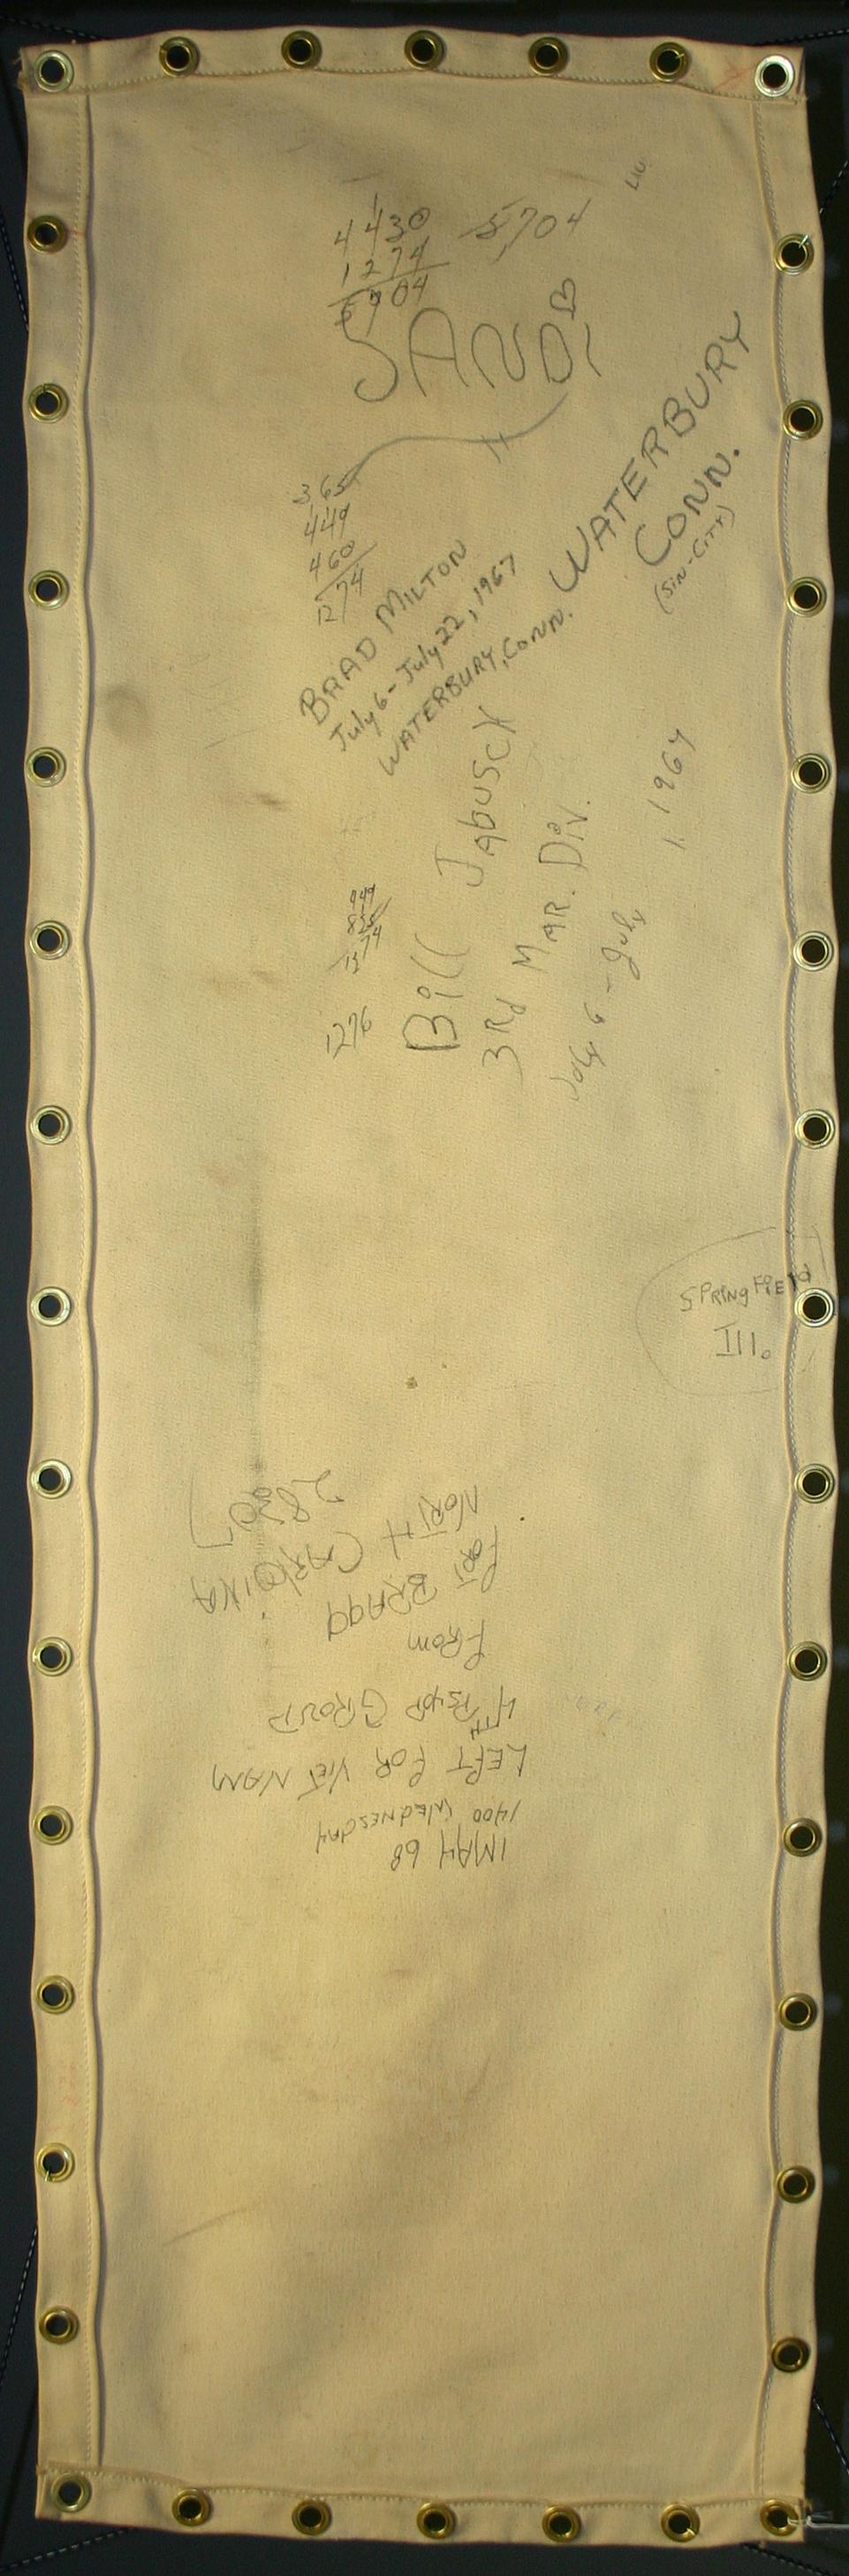 4430
1274
5704
5,704
SANDI
365
449
460
1274
BRAD MILTON
July 6 - July 22, 1967
WATERBURY, CONN.
WATERBURY
CONN.
(SIN-CITY)
Bill Jabusch
3Rd MAR. Div.
July 6 - July 1967
449
825
1274
1276
SPRINGFIELD
Ill.
1 MAY 68
1400 WEDNESDAY
LEFT FOR VIET NAM
4TH PSYOP GROUP
FROM
FORT BRAGG
NORTH CAROLINA
28307